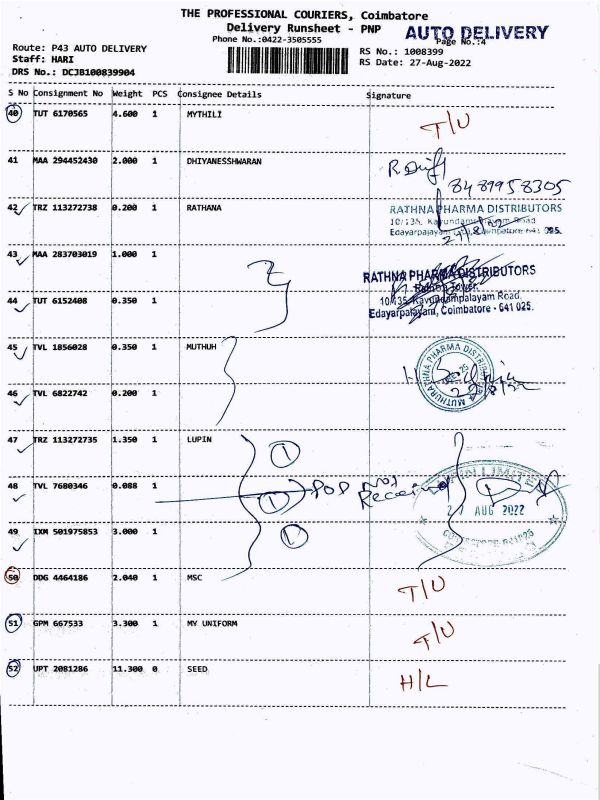 THE PROFESSIONAL COURIERS, Coimbatore
Delivery Runsheet - PNP
AUTO DELIVERY
Phone No.:0422-3505555
Page No.:4
Route: P43 AUTO DELIVERY
RS No.: 1008399
Staff: HARI
RS Date: 27-Aug-2022
DRS No.: DCJB100839904
S No Consignment No Weight PCS Consignee Details Signature
40 TUT 6170565 4.600 1 MYTHILI T/U
41 MAA 294452430 2.000 1 DHIYANESSHWARAN
8489958305
42 TRZ 113272738 0.200 1 RATHANA
RATHNA PHARMA DISTRIBUTORS
10/135, Kavundampalayam Road
Edayarpalayam, Coimbatore 641 025.
27/8/22
43 MAA 283703019 1.000 1
RATHNA PHARMA DISTRIBUTORS
Rathna Tower,
10/135, Kavundampalayam Road,
Edayarpalayam, Coimbatore - 641 025.
44 TUT 6152408 0.350 1
45 TVL 1856028 0.350 1 MUTHUH
MUTHURATHNA PHARMA DISTRIB
46 TVL 6822742 0.200 1
47 TRZ 113272735 1.350 1 LUPIN
1
48 TVL 7680346 0.088 1
1 POD not
Received
27 AUG 2022
49 IXM 501975853 3.000 1
1
50 DDG 4464186 2.040 1 MSC T/U
51 GPM 667533 3.300 1 MY UNIFORM T/U
52 UPT 2081286 11.300 0 SEED H/L